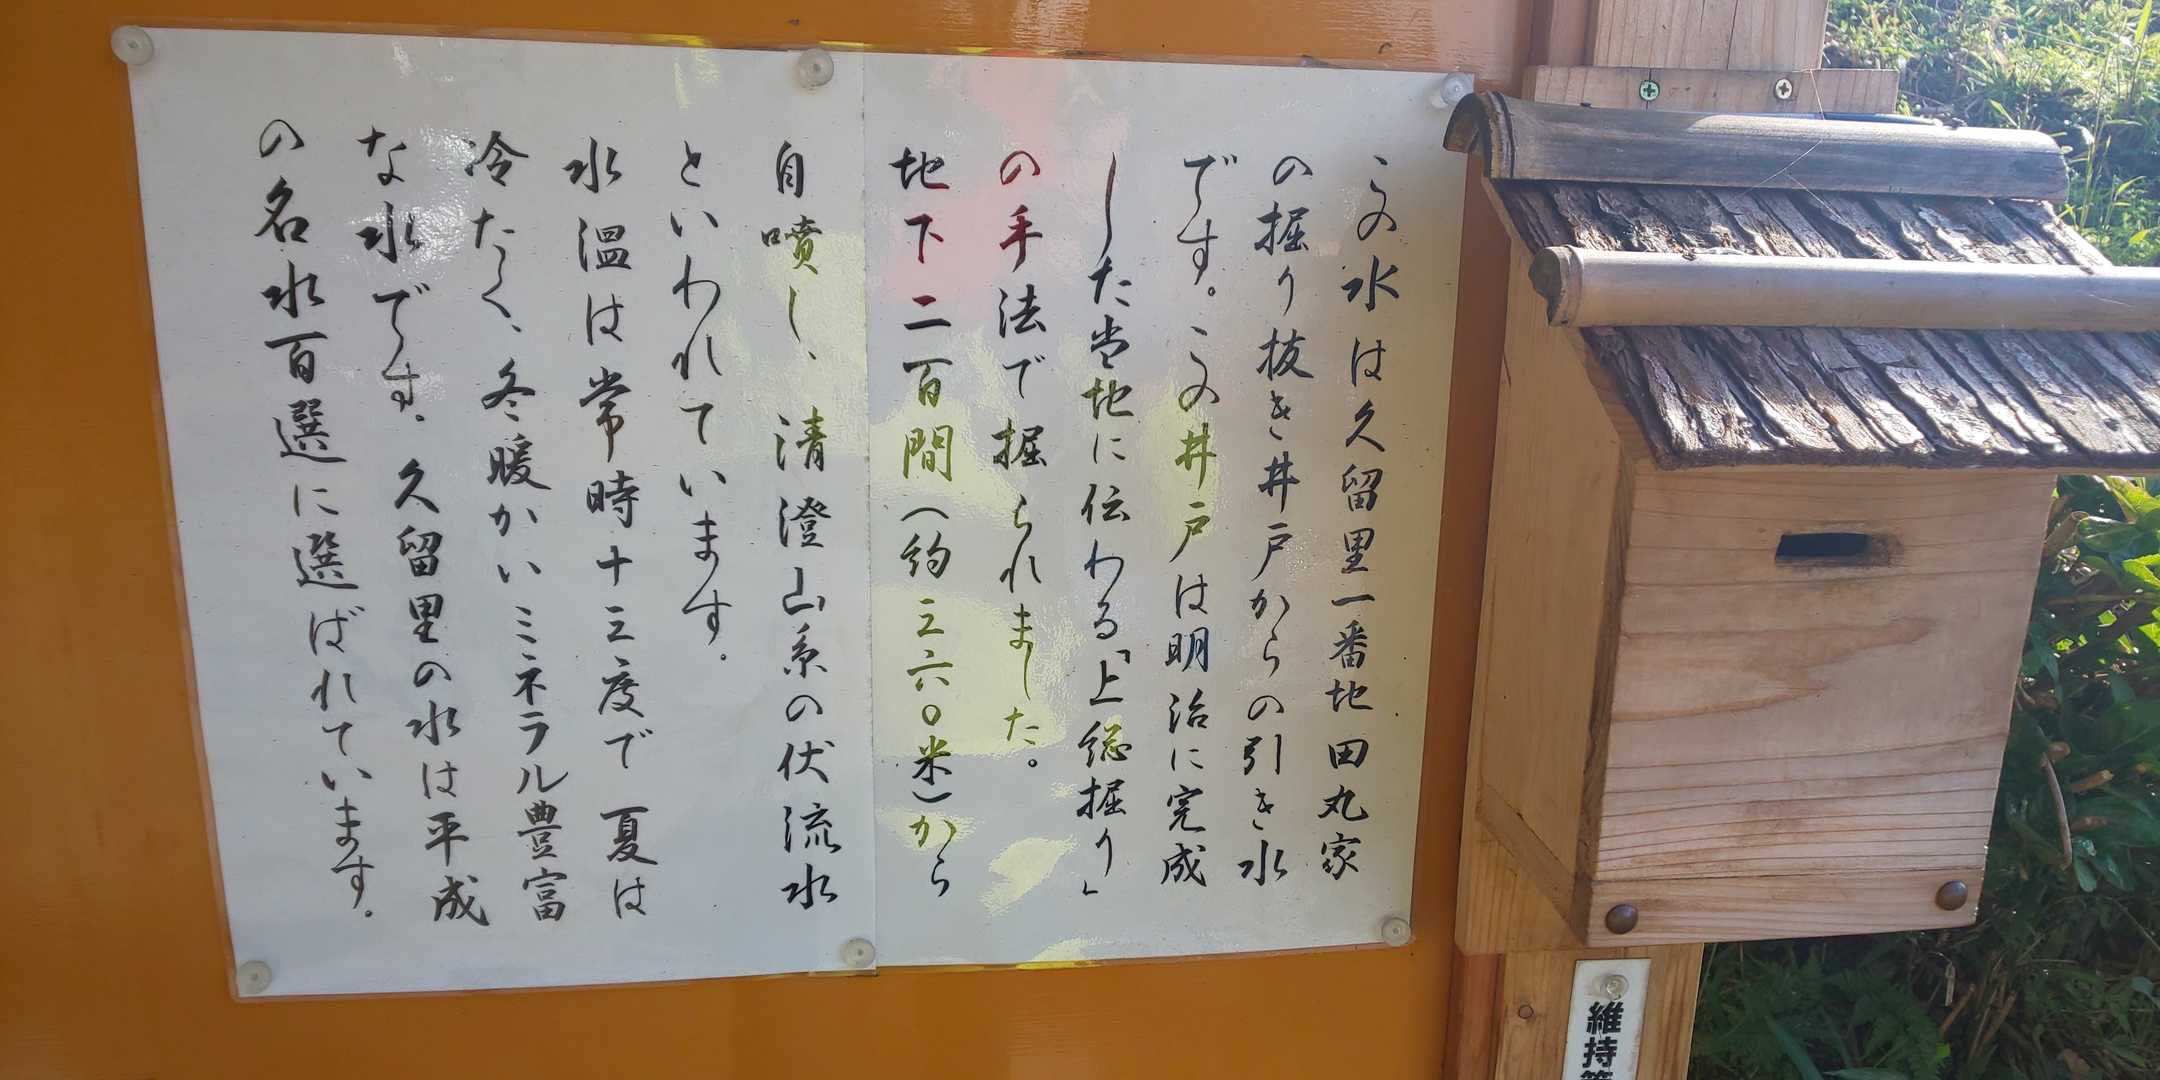 この水は久留里一番地田丸家
の掘り抜き井戸からの引き水
です。この井戸は明治に完成
した当地に伝わる「上総掘り」
の手法で掘られました。
地下二百間(約三六〇米)から
自噴し、清澄山系の伏流水
といわれています。
水温は常時十三度で夏は
冷たく、冬暖かいミネラル豊富
な水です。久留里の水は平成
の名水百選に選ばれています。
維持